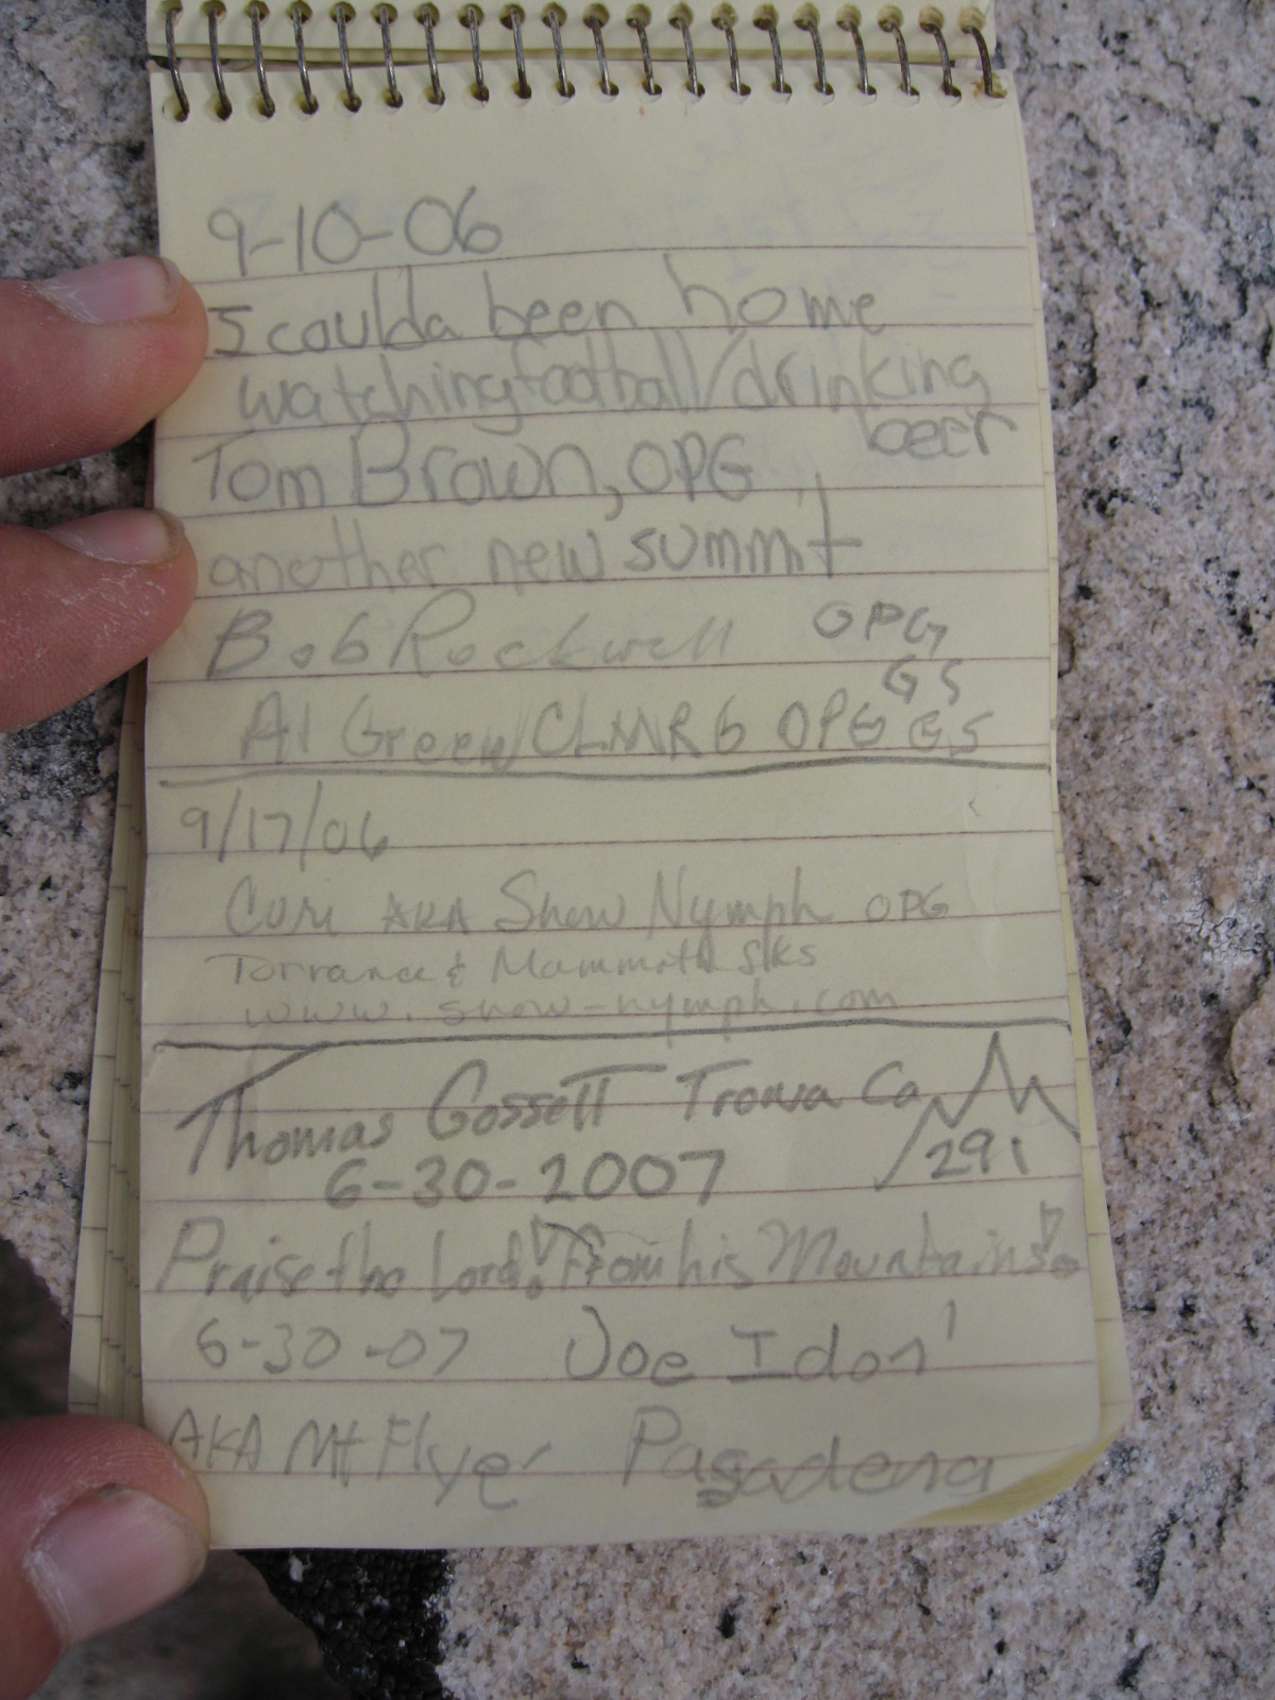 9-10-06
I coulda been home
watching football/drinking
beer
Tom Brown, OPG
another new summit
Bob Rockwell OPG
GS
Al Green CLMRG OPG GS
9/17/06
AKA Snow Nymph OPG
Torrance & Mammoth
www.snow-nymph.com
Thomas Gossett Trona Ca
6-30-2007 291
Praise the Lord! From his Mountains!
6-30-07 Joe Idon
AKA Mt Flyer Pasadena